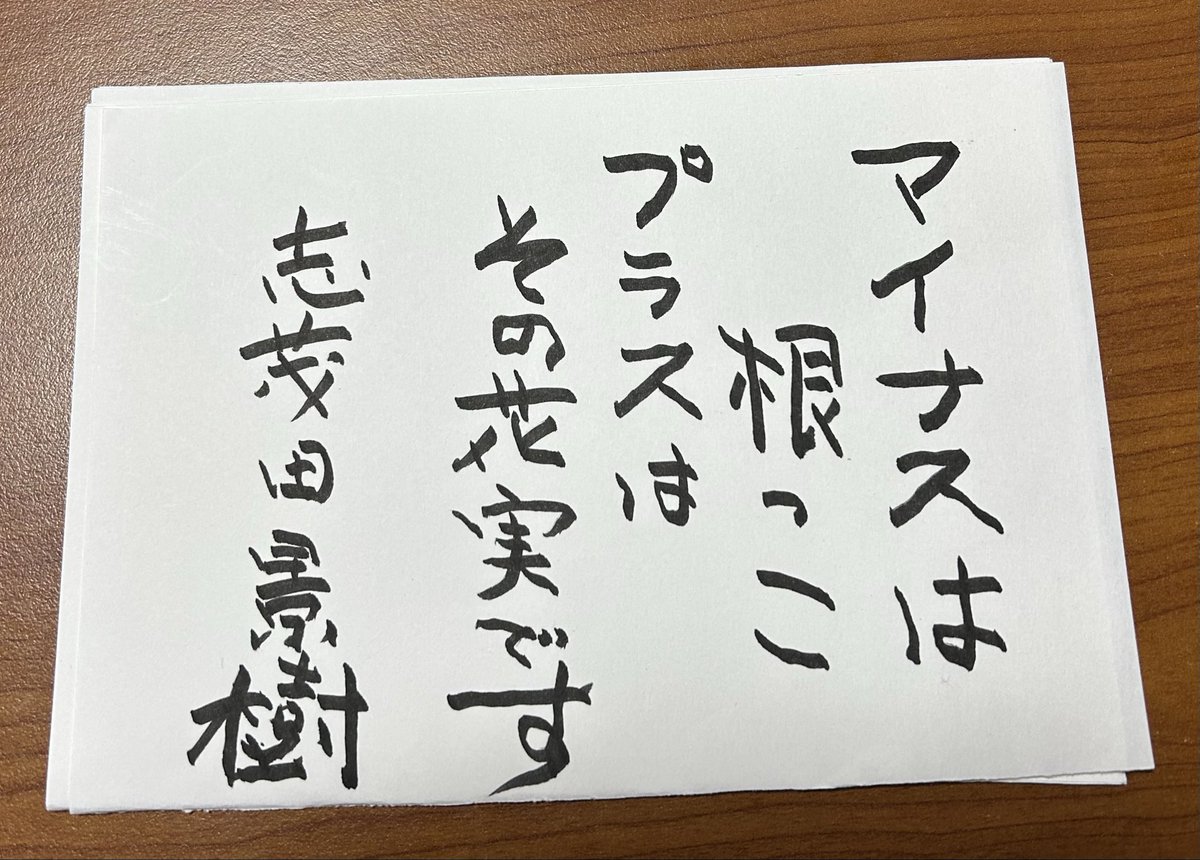 マイナスは
根っこ
プラスは
その花実です
志茂田景樹